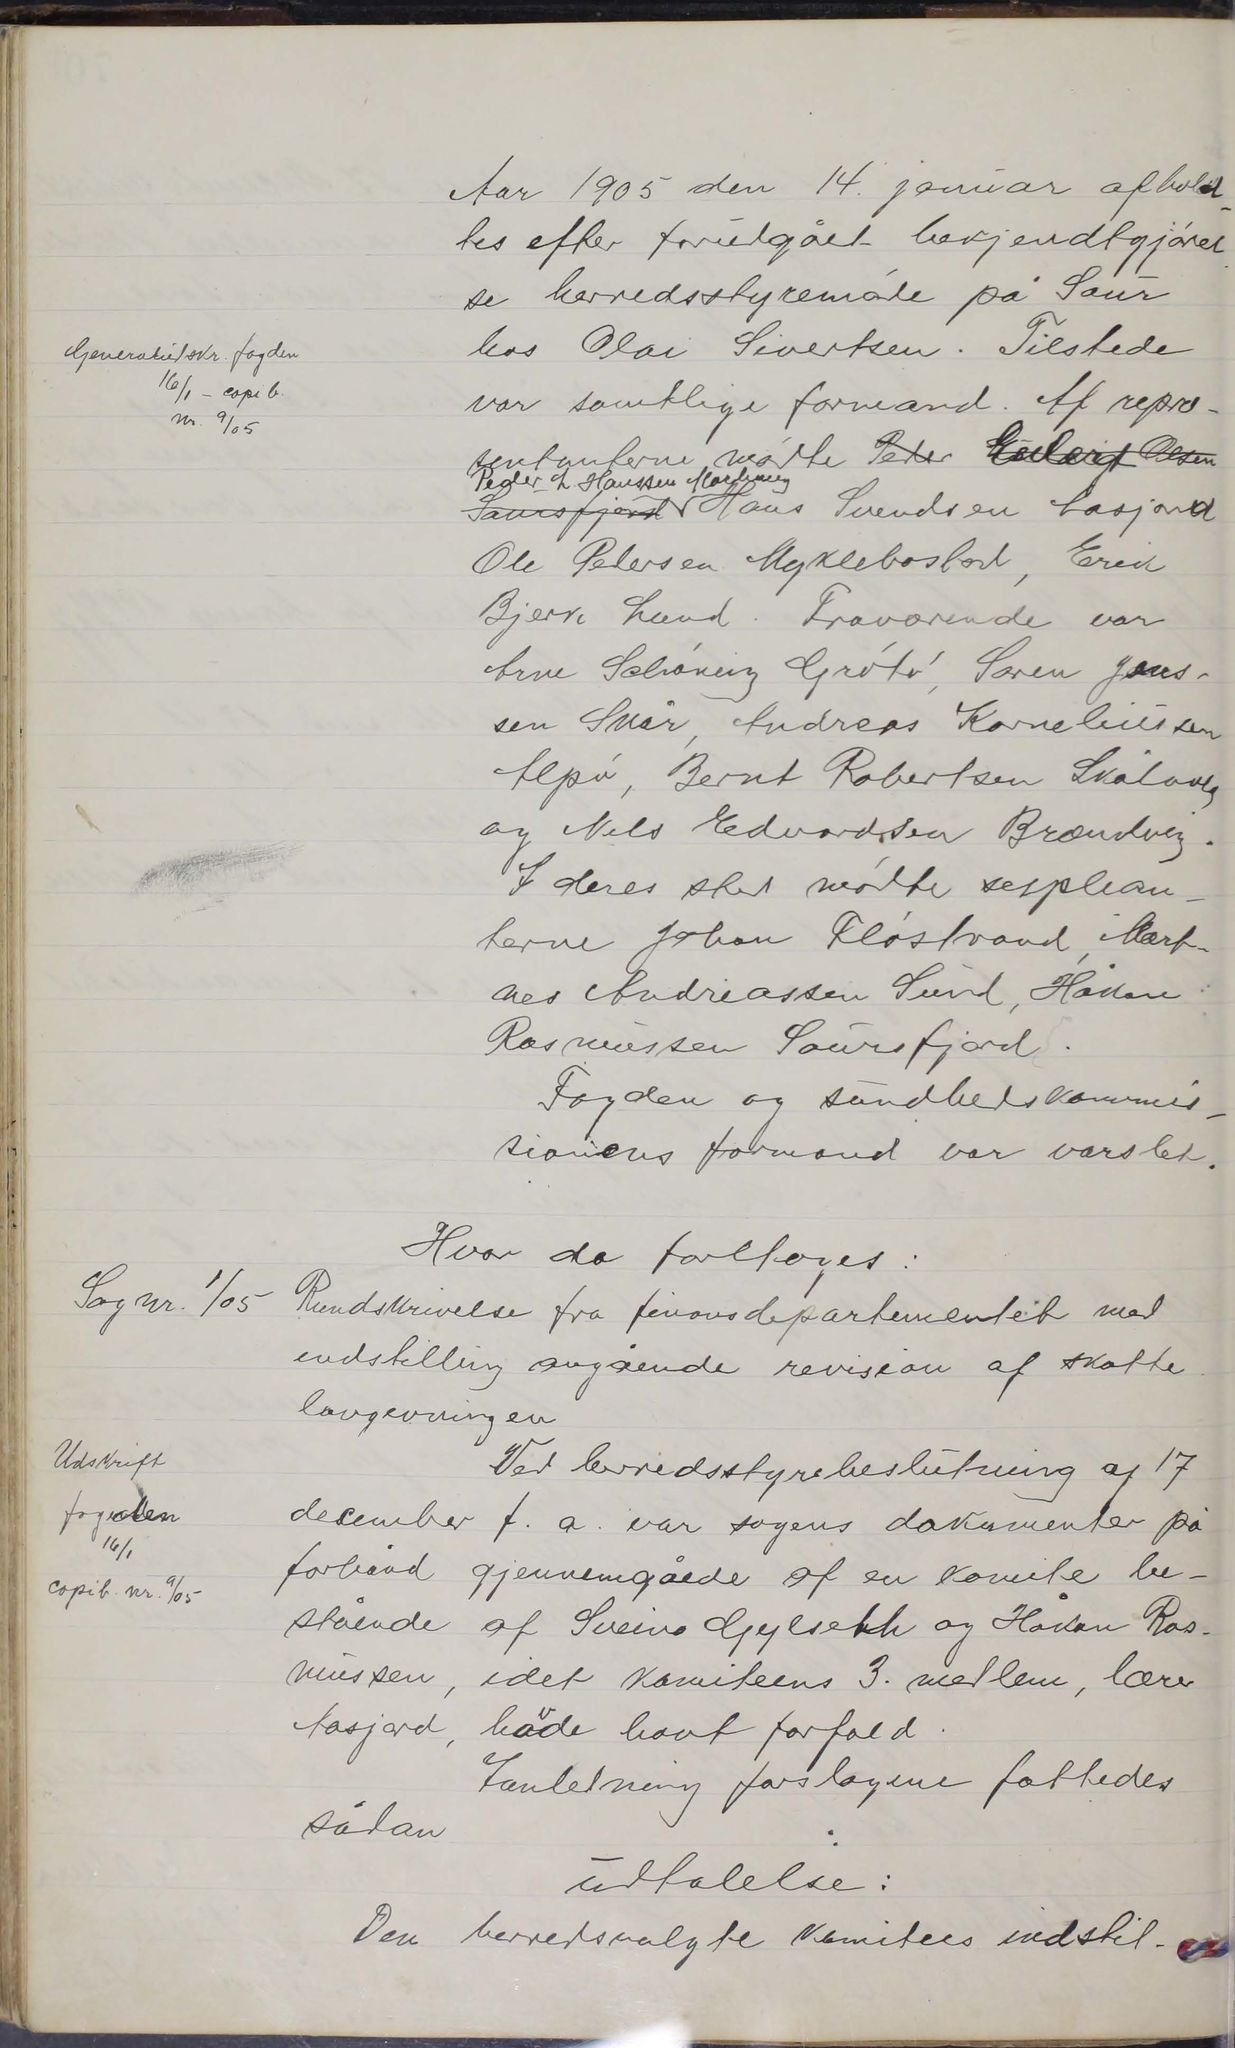 Aar 1905 den 14. januar afhold-
tes efter forutgået bekjendtgjørel
se herredsstyremøde på Saur
hos Olai Sivertsen. Tilstede
Generaludskr. fogden
16/1 - copib.
nr. 9/05
var samtlige formænd. Af repræ-
sentanterne mødte Peder Olsen
Peder L Hanssen
Saursfjord Hans Svendsen Aasjord
Ole Petersen Myklebostad, Erik
Bjerk Lund. Fraværende var
Arne Schøning Grøtø, Søren Jens-
sen Skår, Andreas Korneliussen
Alpø, Bernt Robertsen
og Nils Edvardsen Brændvig.
I deres sted mødte supplean-
terne Johan Fløstrand, Mort-
nes Andreassen Sund, Håkon
Rasmussen Saursfjord.
Fogden og sundhedskommis-
sionens formand var varslet.
Hvor da foretoges:
Sag nr. 1/05 Rundskrivelse fra finansdepartementet med
indstilling angående revision af skatte
lovgevningen
Ved herredsstyrebeslutning af 17
Udskrift
fogden
16/1
copib. nr. 9/05
december f. a. var sagens dokumenter på
forhånd gjennemgåede af en komite be-
stående af Sveino Gylseth og Håkon Ras-
mussen, idet komiteens 3. medlem, lærer
Aasjord, hade havt forfald.
I anledning forslagene fattedes
sådan
udtalelse:
Den herredsvalgte komitees indstil-